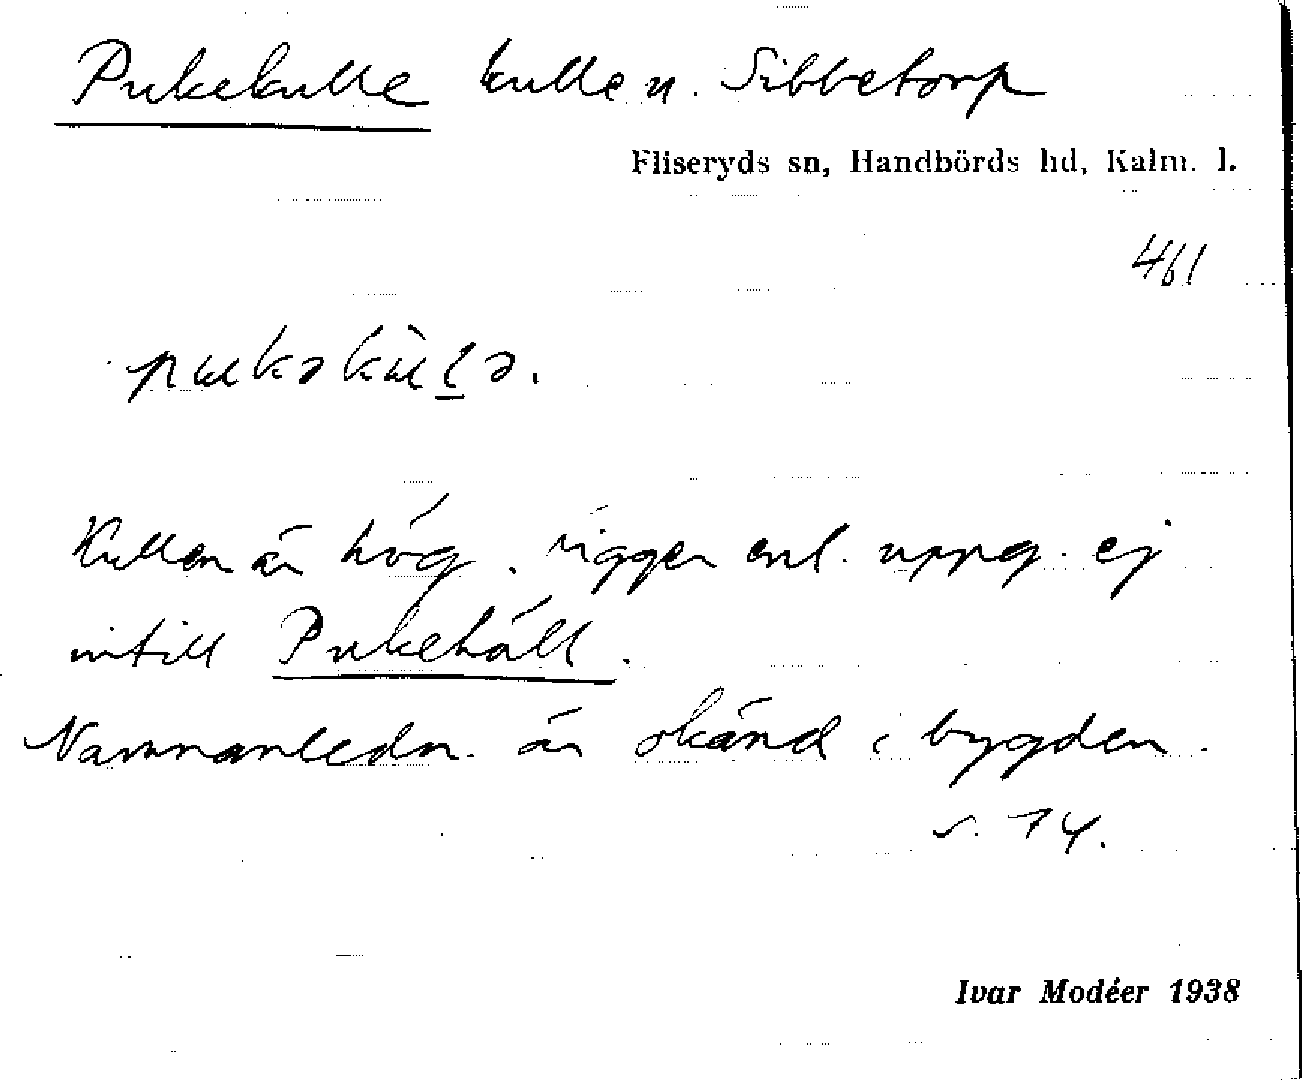 Pukekulle kulle n. Sibbetorp
Fliseryds sn, Handbörds hd, Kalm. l.
461
pukəkùlə.
Kullen är hög. Ligger enl. uppg. ej
intill Pukehäll.
Namnanledn. är okänd i bygden.
s. 74.
Ivar Modéer 1938